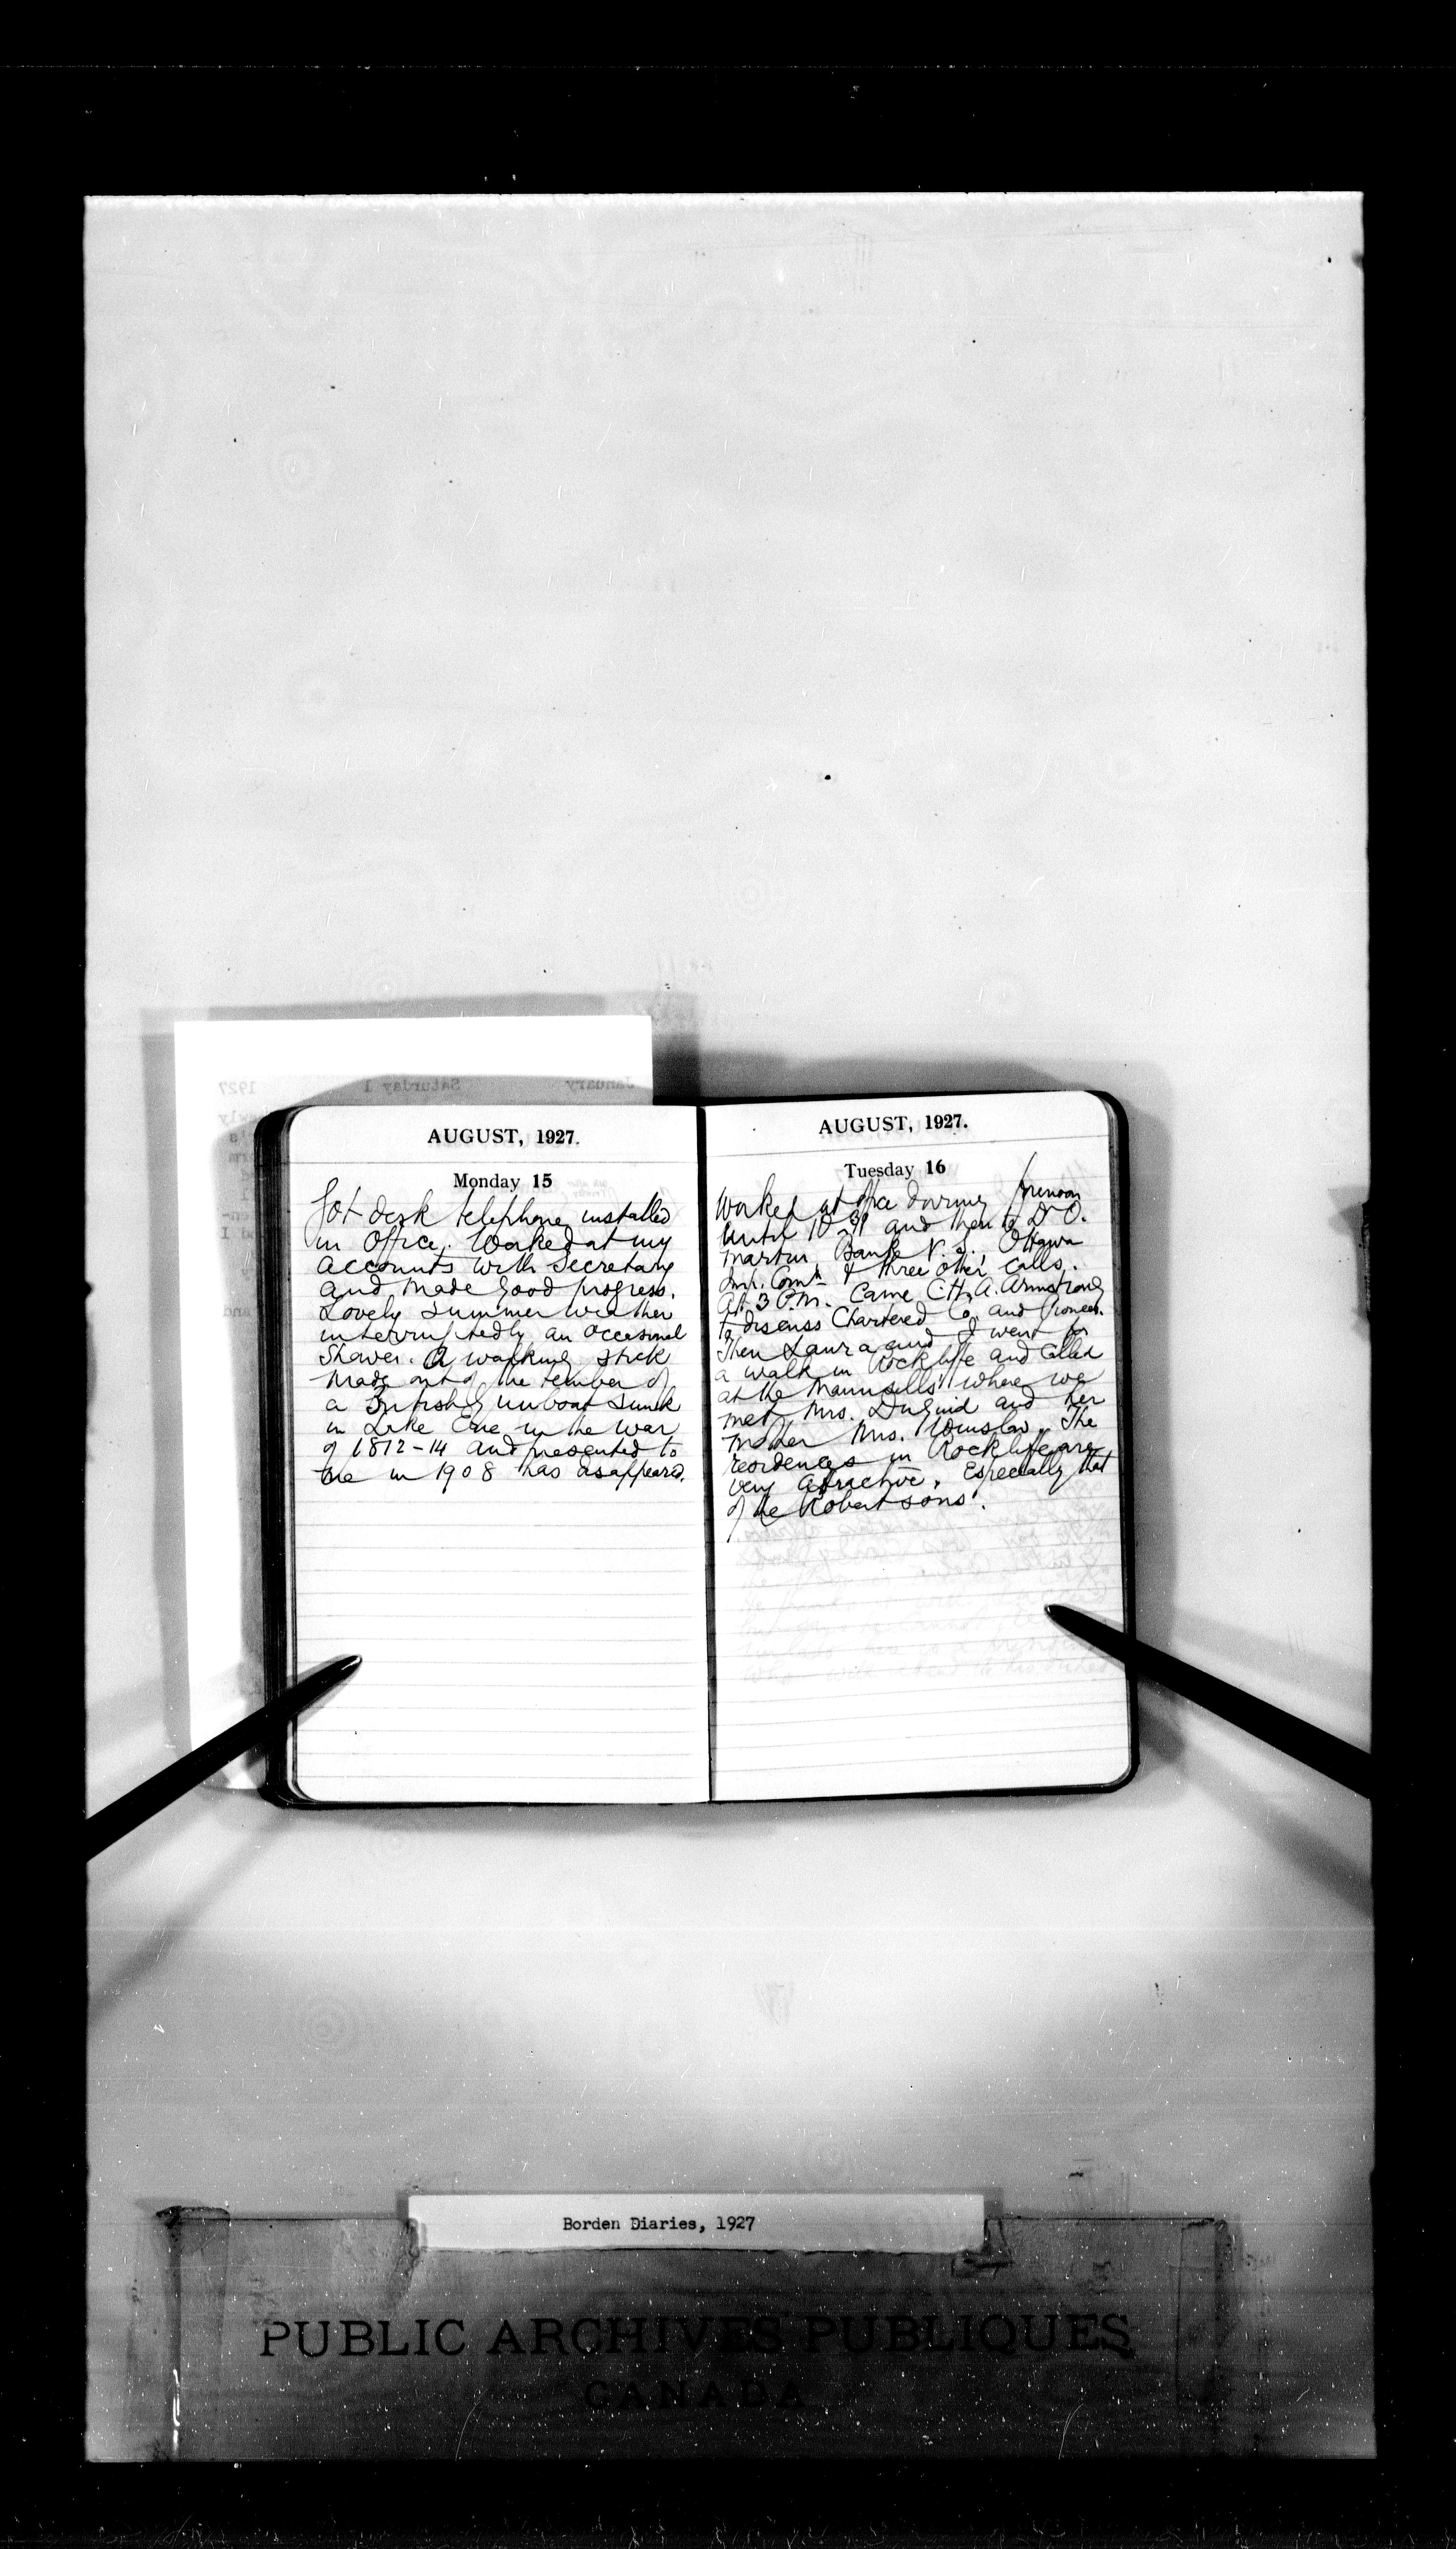 AUGUST, 1927.
Monday 15
Got desk telephone installed
in office. Worked at my
accounts with Secretary
and made good progress.
Lovely summer weather
interruptedly an occasional
shower. A walking stick
made out of the timber of
a British gunboat sunk
in Lake Erie in the War
of 1812-14 and presented to
me in 1908 has disappeared.
AUGUST, 1927.
Tuesday 16
Worked at office during forenoon
until 10 and then to D. O.
Martin, Bank N. S., Ottawa
Imp. Comn & three other calls.
At 3 P.M. came C.H.A. Armstrong
to discuss Chartered Co. and Pioneer.
Then Laura and I went for
a walk in Rockliffe and called
at the Maunsells' where we
met Mrs. Duguid and her
mother Mrs. Winslow. The
residences in Rockliffe are
very attractive, especially that
of the Robertsons'.
January Saturday 1 1927
Borden Diaries, 1927
PUBLIC ARCHIVES PUBLIQUES
CANADA